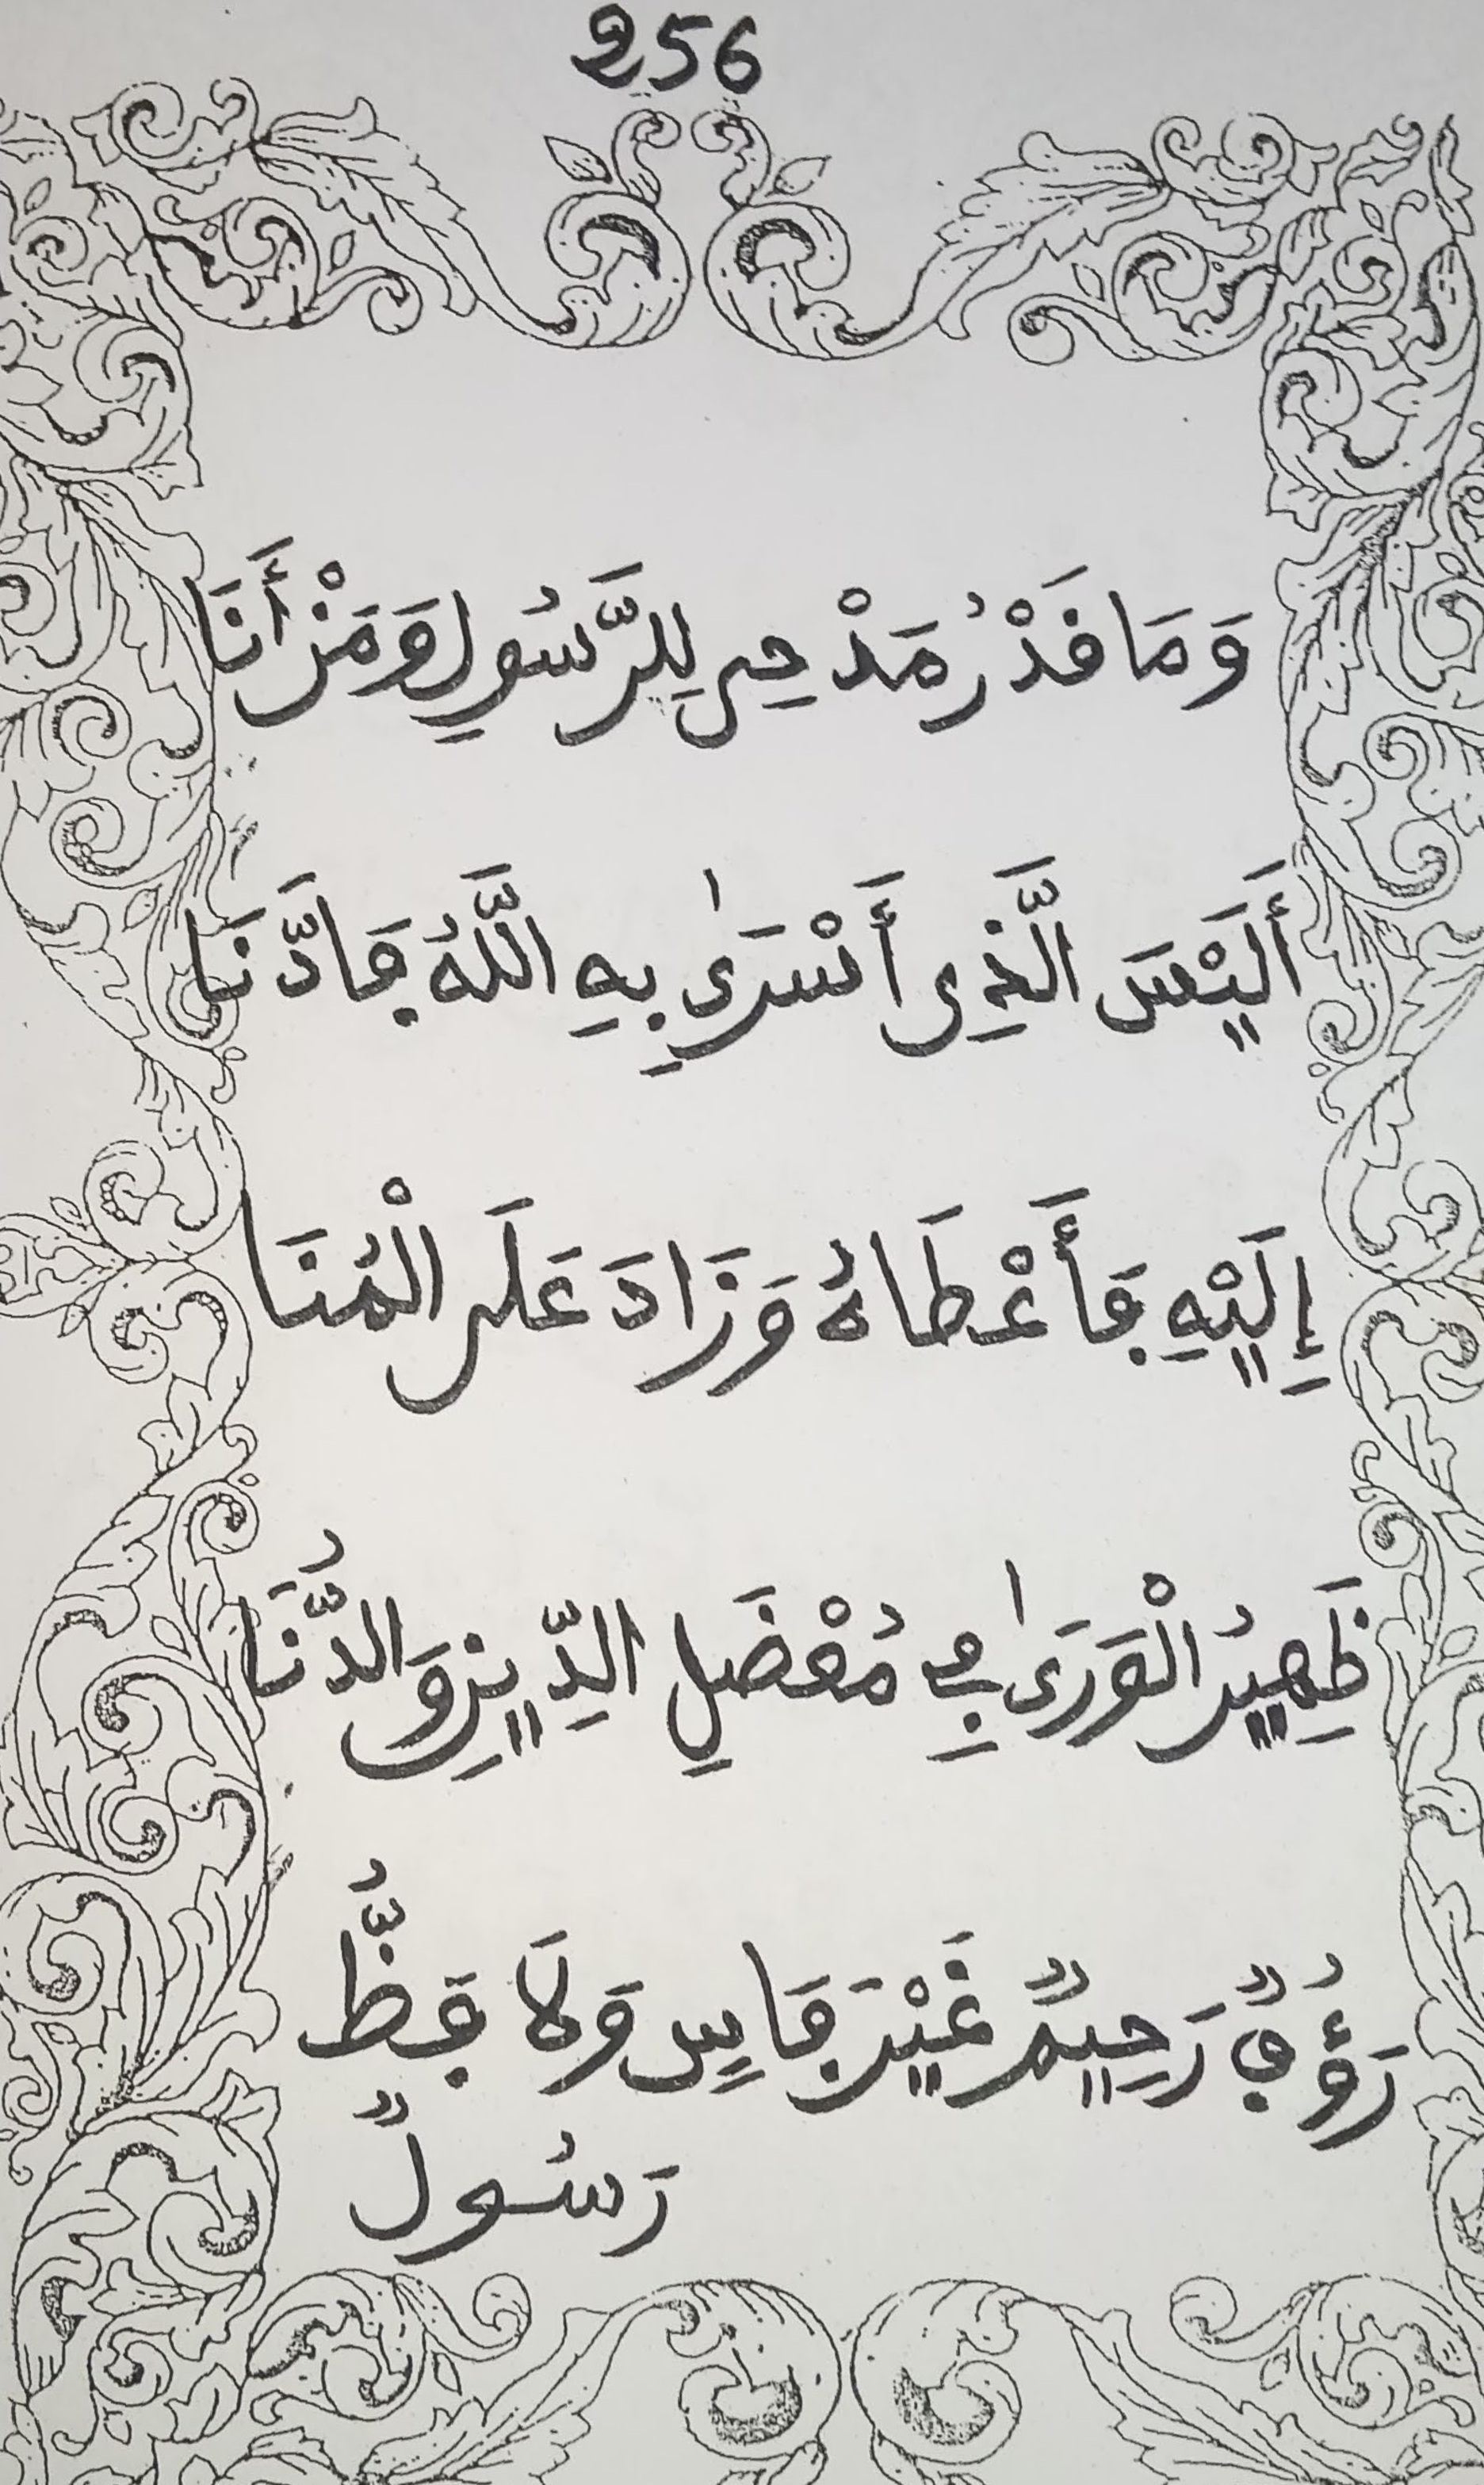 256
وَمَا قَدْرُ مَدْحِي لِلرَّسُولِ وَمَنْ أَنَا
أَلَيْسَ الَّذِي أَسْرَىٰ بِهِ اللَّهُ فَادَّنَا
إِلَيْهِ فَأَعْطَاهُ وَزَادَ عَلَى الْمُنَا
ظَهِيرُ الْوَرَىٰ فِي مُعْضَلِ الدِّينِ وَالدُّنَا
رَؤُفٌ رَحِيمٌ غَيْرَ قَاسٍ وَلَا فَظُّ
رَسُولٌ